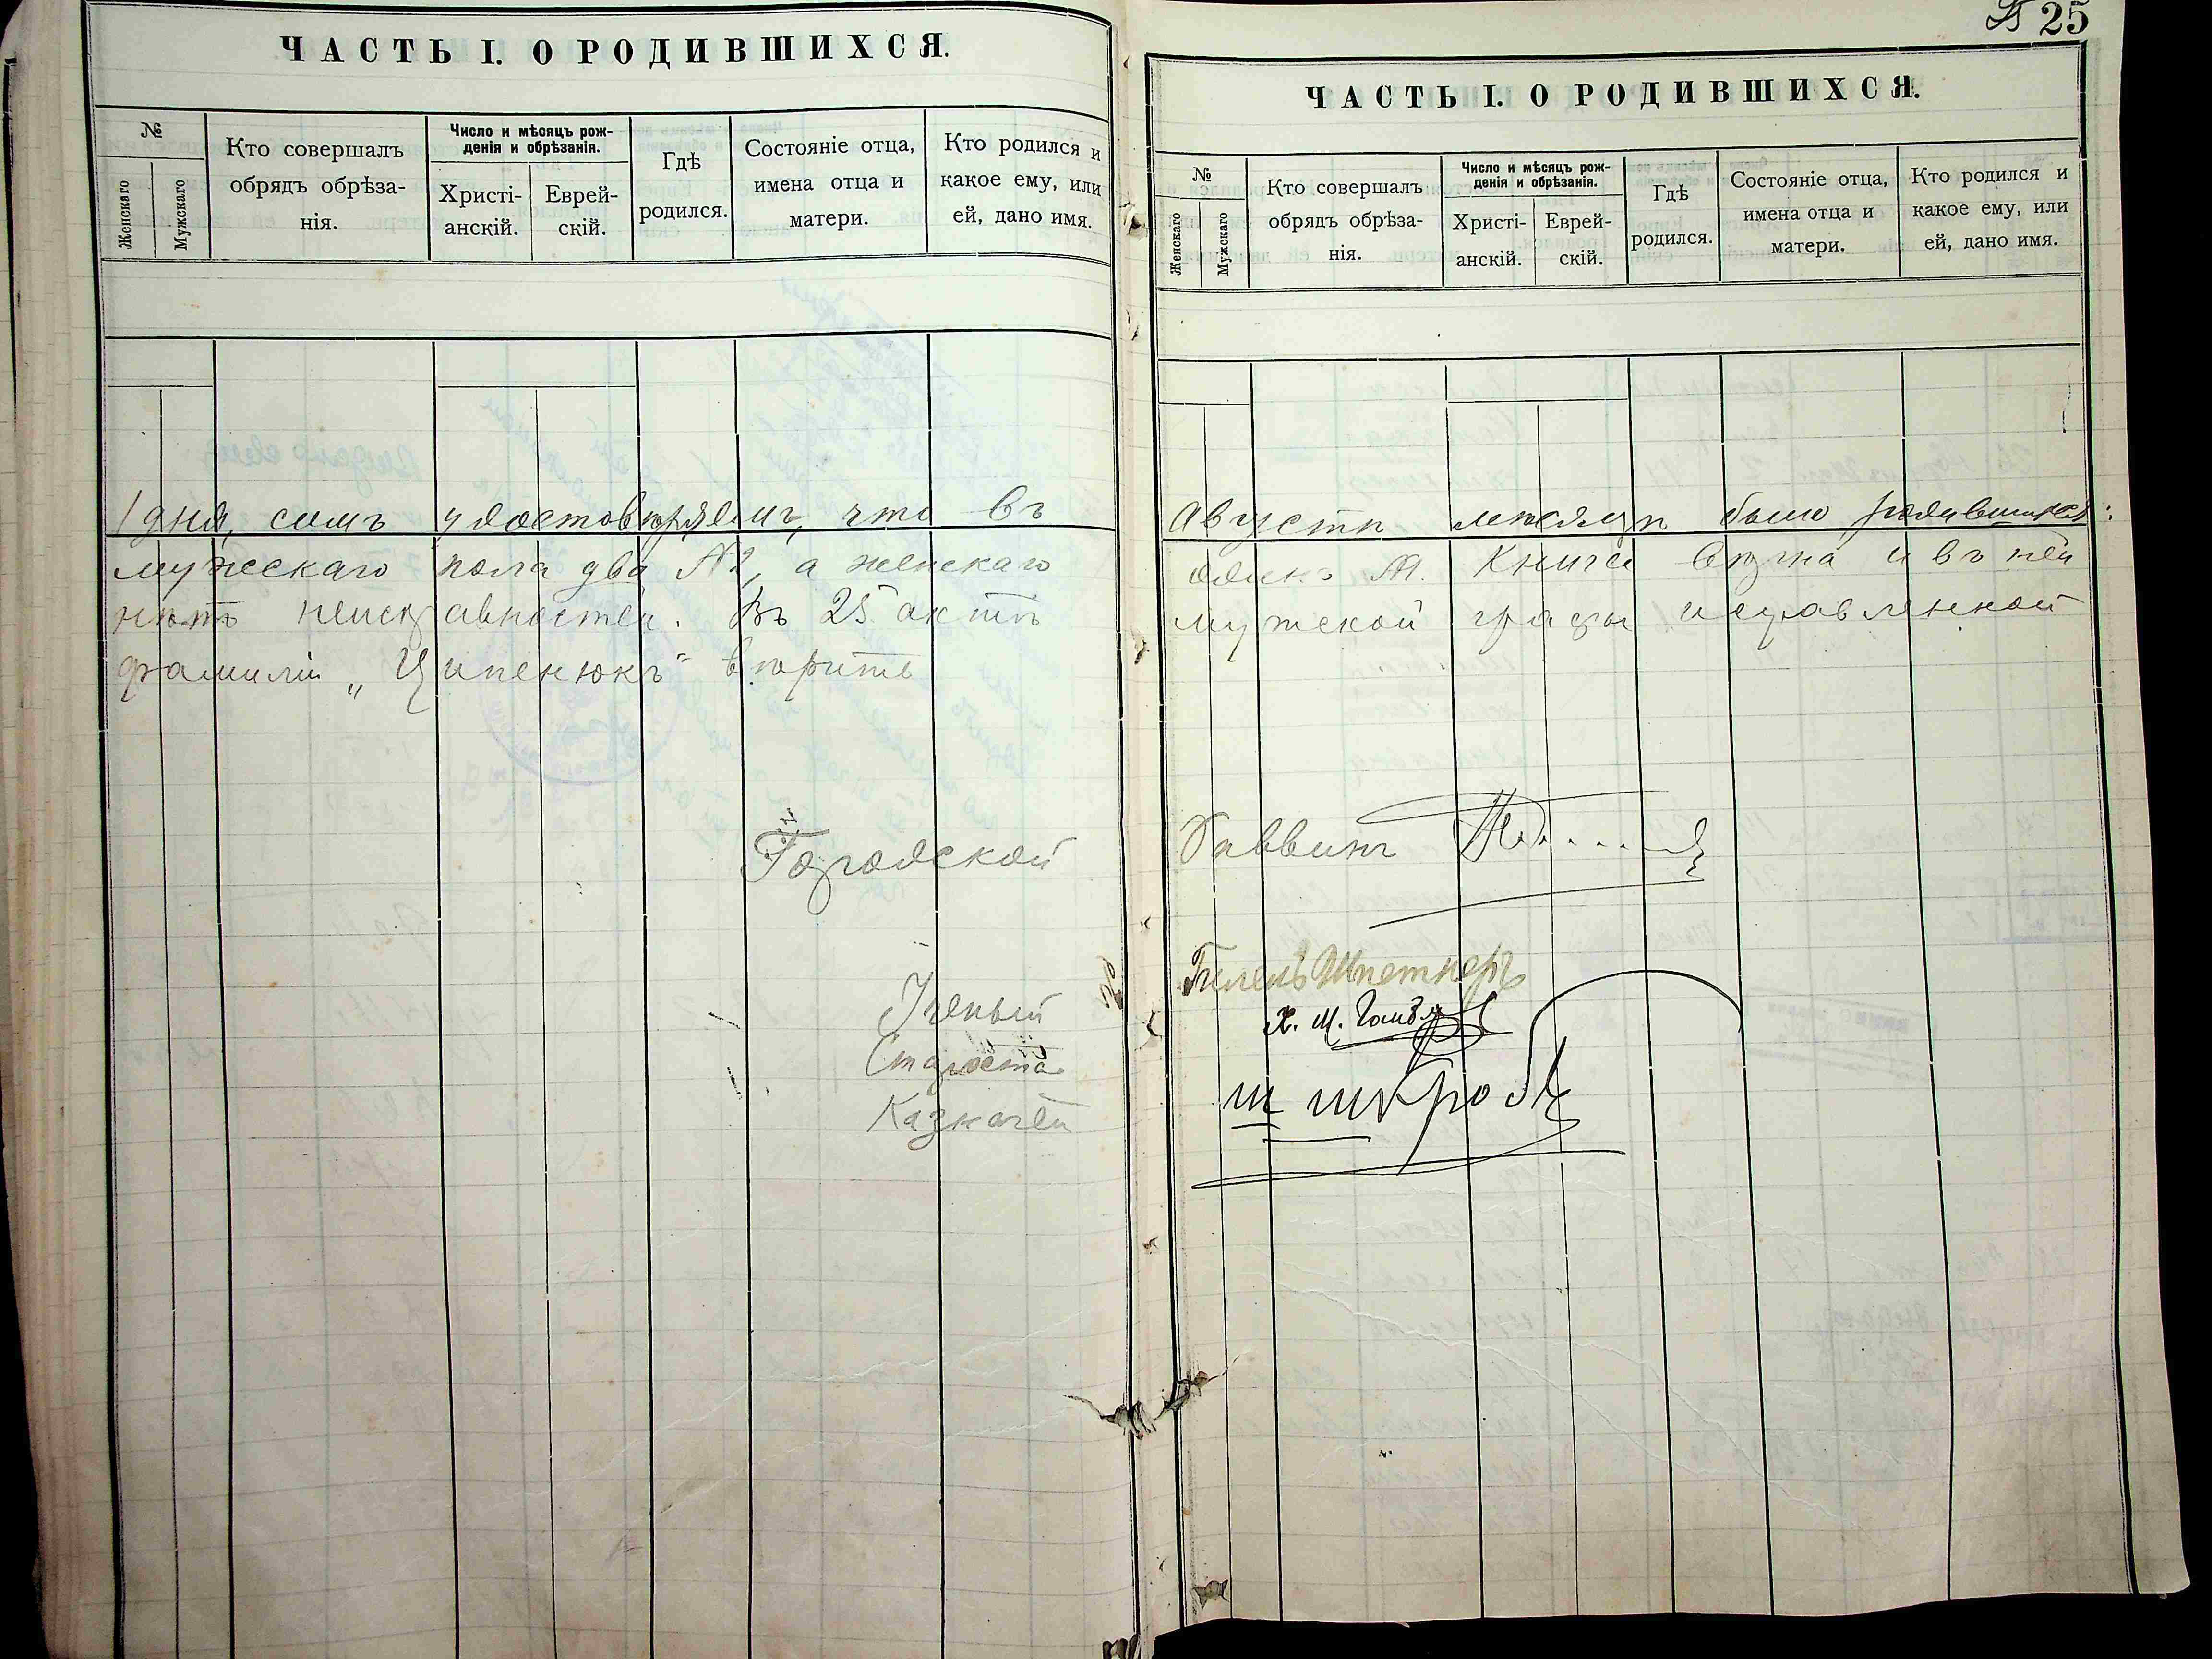 ЧАСТЬ I. О РОДИВШИХСЯ.
№
Женскаго
Мужскаго
Кто совершалъ
обрядъ обрѣза-
нія.
Число и мѣсяцъ рож-
денія и обрѣзанія.
Христі-
анскій.
Еврей-
скій.
Гдѣ
родился.
Состояніе отца,
имена отца и
матери.
Кто родился и
какое ему, или
ей, дано имя.
1 дня, симъ удостовѣряемъ, что въ
мужескаго пола два №2, а женскаго
нѣтъ неисправностей. Въ 25 актѣ
фамиліи „Ципенюкъ" вѣрить
Городской
Ученый
Староста
Казначей
25
ЧАСТЬ I. О РОДИВШИХСЯ.
№
Женскаго
Мужскаго
Кто совершалъ
обрядъ обрѣза-
нія.
Число и мѣсяцъ рож-
денія и обрѣзанія.
Христі-
анскій.
Еврей-
скій.
Гдѣ
родился.
Состояніе отца,
имена отца и
матери.
Кто родился и
какое ему, или
ей, дано имя.
Августѣ мѣсяцѣ было родившихся:
одинъ №1. Книга вѣрна и въ ней
мужской графы исправленной
Раввинъ
Шпетнеръ
Х. М.